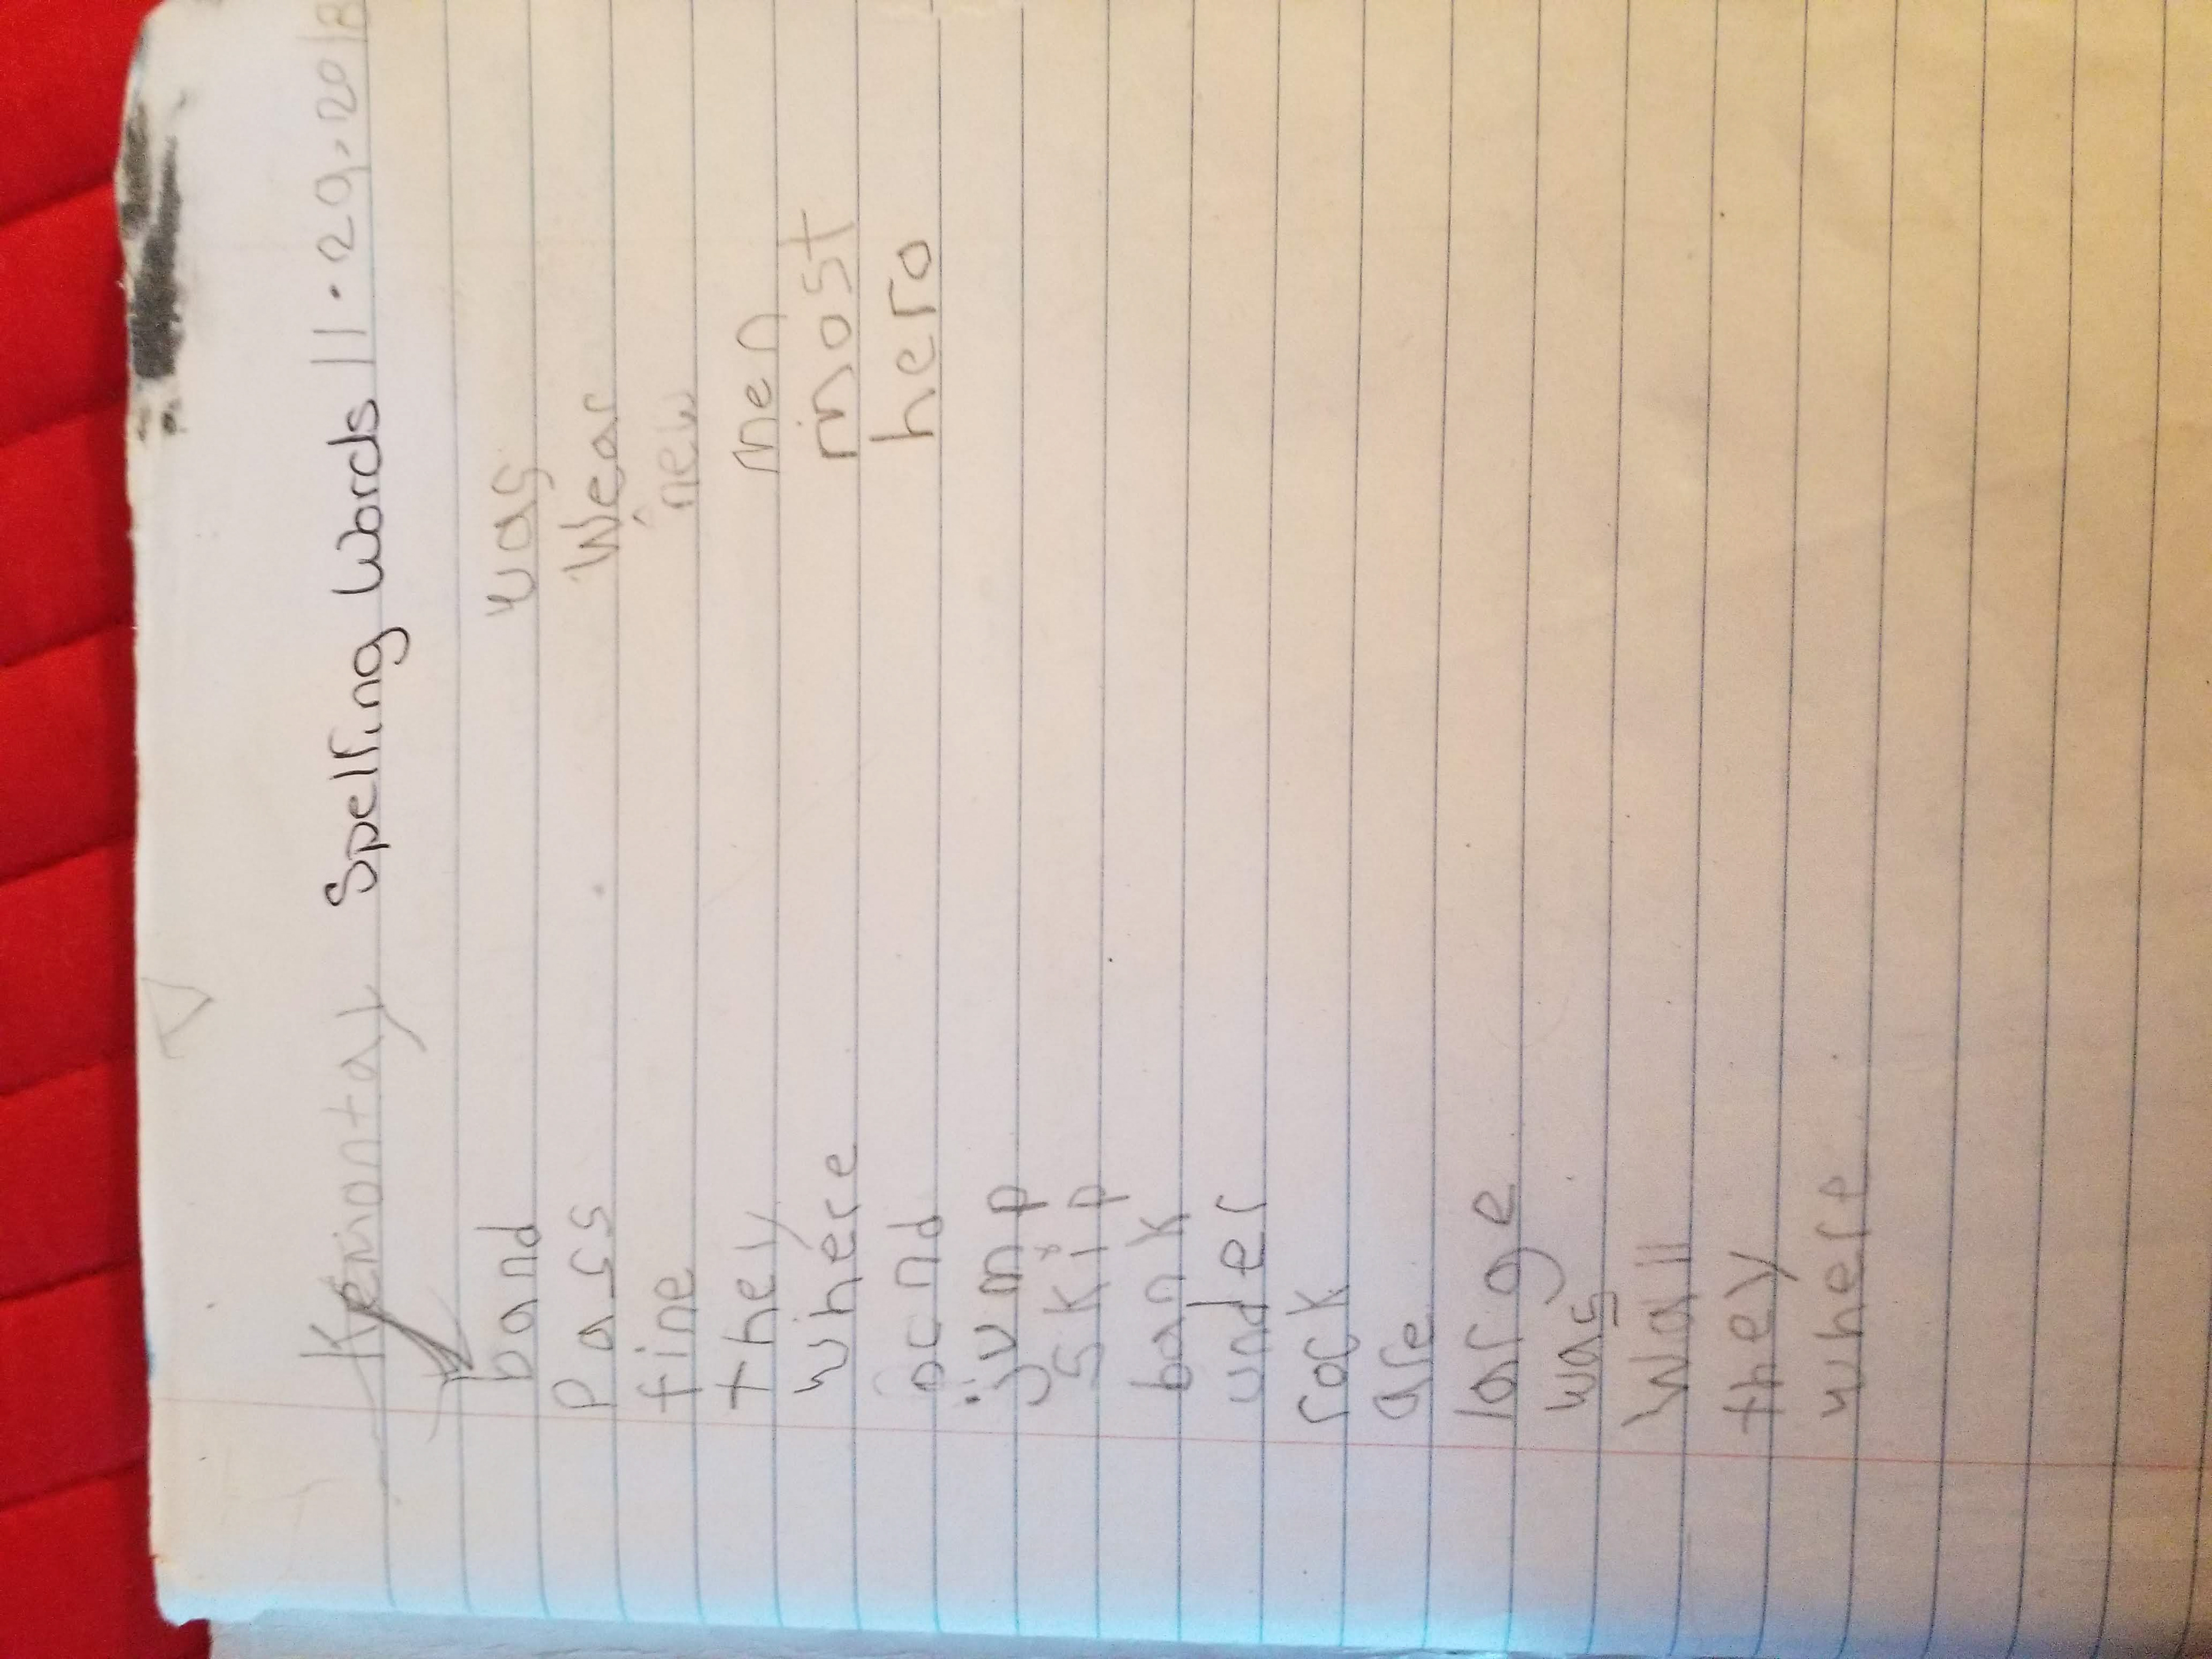 Kemontay Spelling Words 11.29.2018
band was
pass wear
fine new
they men
where most
and hero
jump
skip
bank
under
rock
are
large
was
wall
they
where